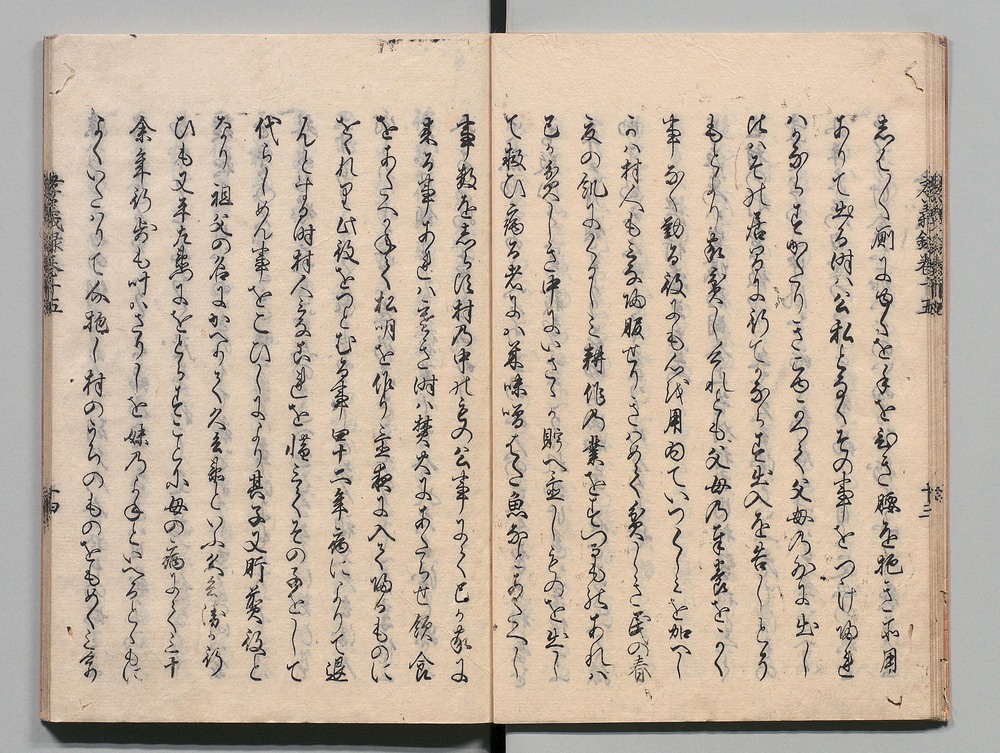 しハ〳〵厠にゆくを手をひき腰を抱き不用
ありて出る時ハ公私となくその事をつけ帰れ
ハかならすかたりきこゆかつく父母の外に出し
時ハその居間に行てかならす出入を告しとそ
もとより家貧しけれとも父母の奉養をかく
事なく勤る役にも心を用ゐていつくしミを加へし
かハ村人もミな帰服せりさハめて貧しき民の春
夏の飢にくるしミ耕作の業をすつるものあれハ
己か貧しき中にいさゝか貯へ置しものを出し
て救ひ病る者にハ米味噌または魚なとあたへし
事数をしらす村の中のもの公事にて己か家に
来る事あれハ寒き時ハ焚火にあたらせ飯食
をあたへ多く松明を作り置夜に入て帰るものに
をくれり此役をつとむる事四十二年病によりて退
んとする時村人ミなこれを惜ミてその子をして
代らしめん事をこひしにより其子又肝煎役と
なり祖父の名にかへりて久兵衛といふ久兵衛か行
ひも又平左衛門にをとらすことに母の病にて三十
余年行歩も叶ハさりしを妹のよねといへるとゝもに
よくいたハりて介抱し村のうちのものをもめくミ
孝義録巻十五
十三
孝義録巻十五
十四